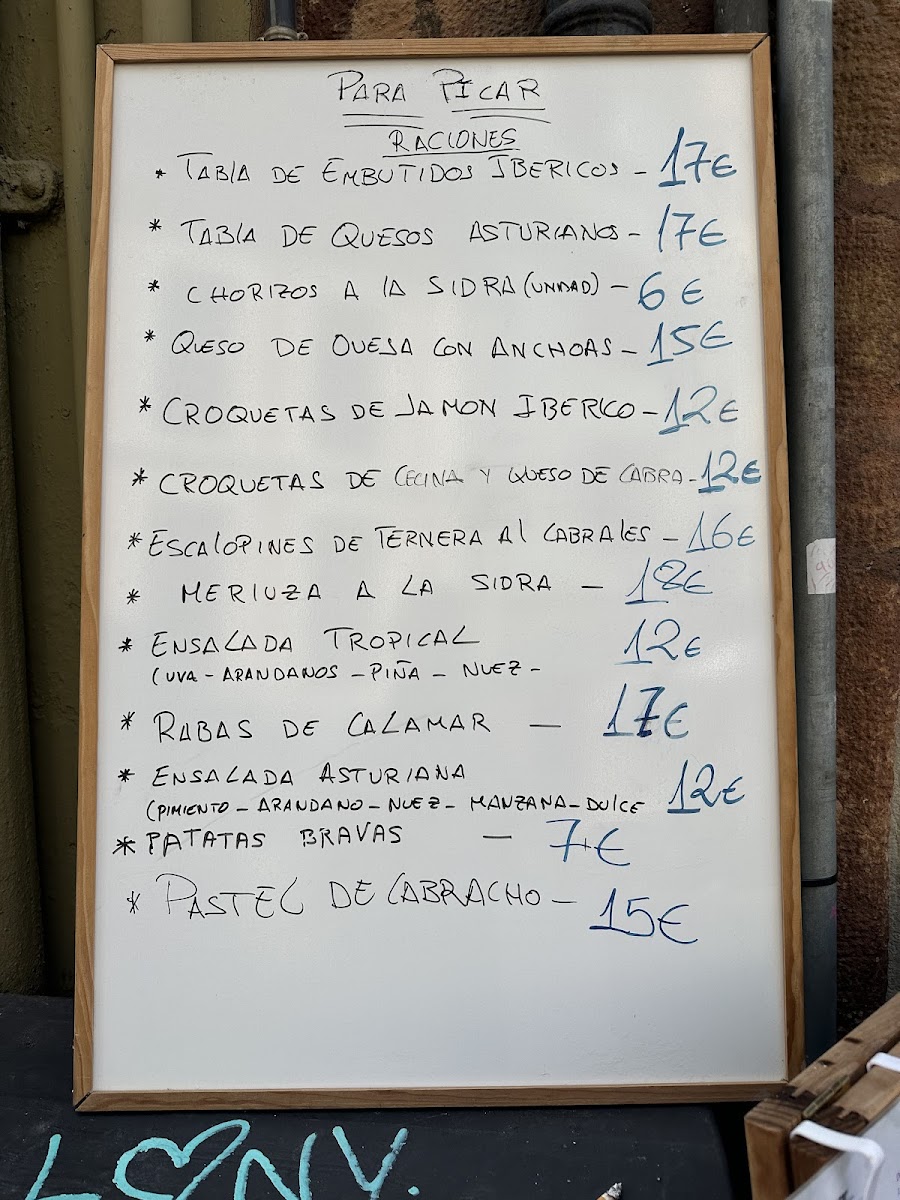 PARA PICAR
RACIONES
* TABLA DE EMBUTIDOS IBERICOS - 17€
* TABLA DE QUESOS ASTURIANOS - 17€
* CHORIZOS A LA SIDRA (UNIDAD) - 6€
* QUESO DE OVEJA CON ANCHOAS - 15€
* CROQUETAS DE JAMON IBERICO - 12€
* CROQUETAS DE CECINA Y QUESO DE CABRA - 12€
* ESCALOPINES DE TERNERA AL CABRALES - 16€
* MERLUZA A LA SIDRA - 18€
* ENSALADA TROPICAL 12€
(UVA - ARANDANOS - PIÑA - NUEZ -
* RABAS DE CALAMAR - 17€
* ENSALADA ASTURIANA 12€
(PIMIENTO - ARANDANO - NUEZ - MANZANA - DULCE
* PATATAS BRAVAS - 7€
* PASTEL DE CABRACHO - 15€